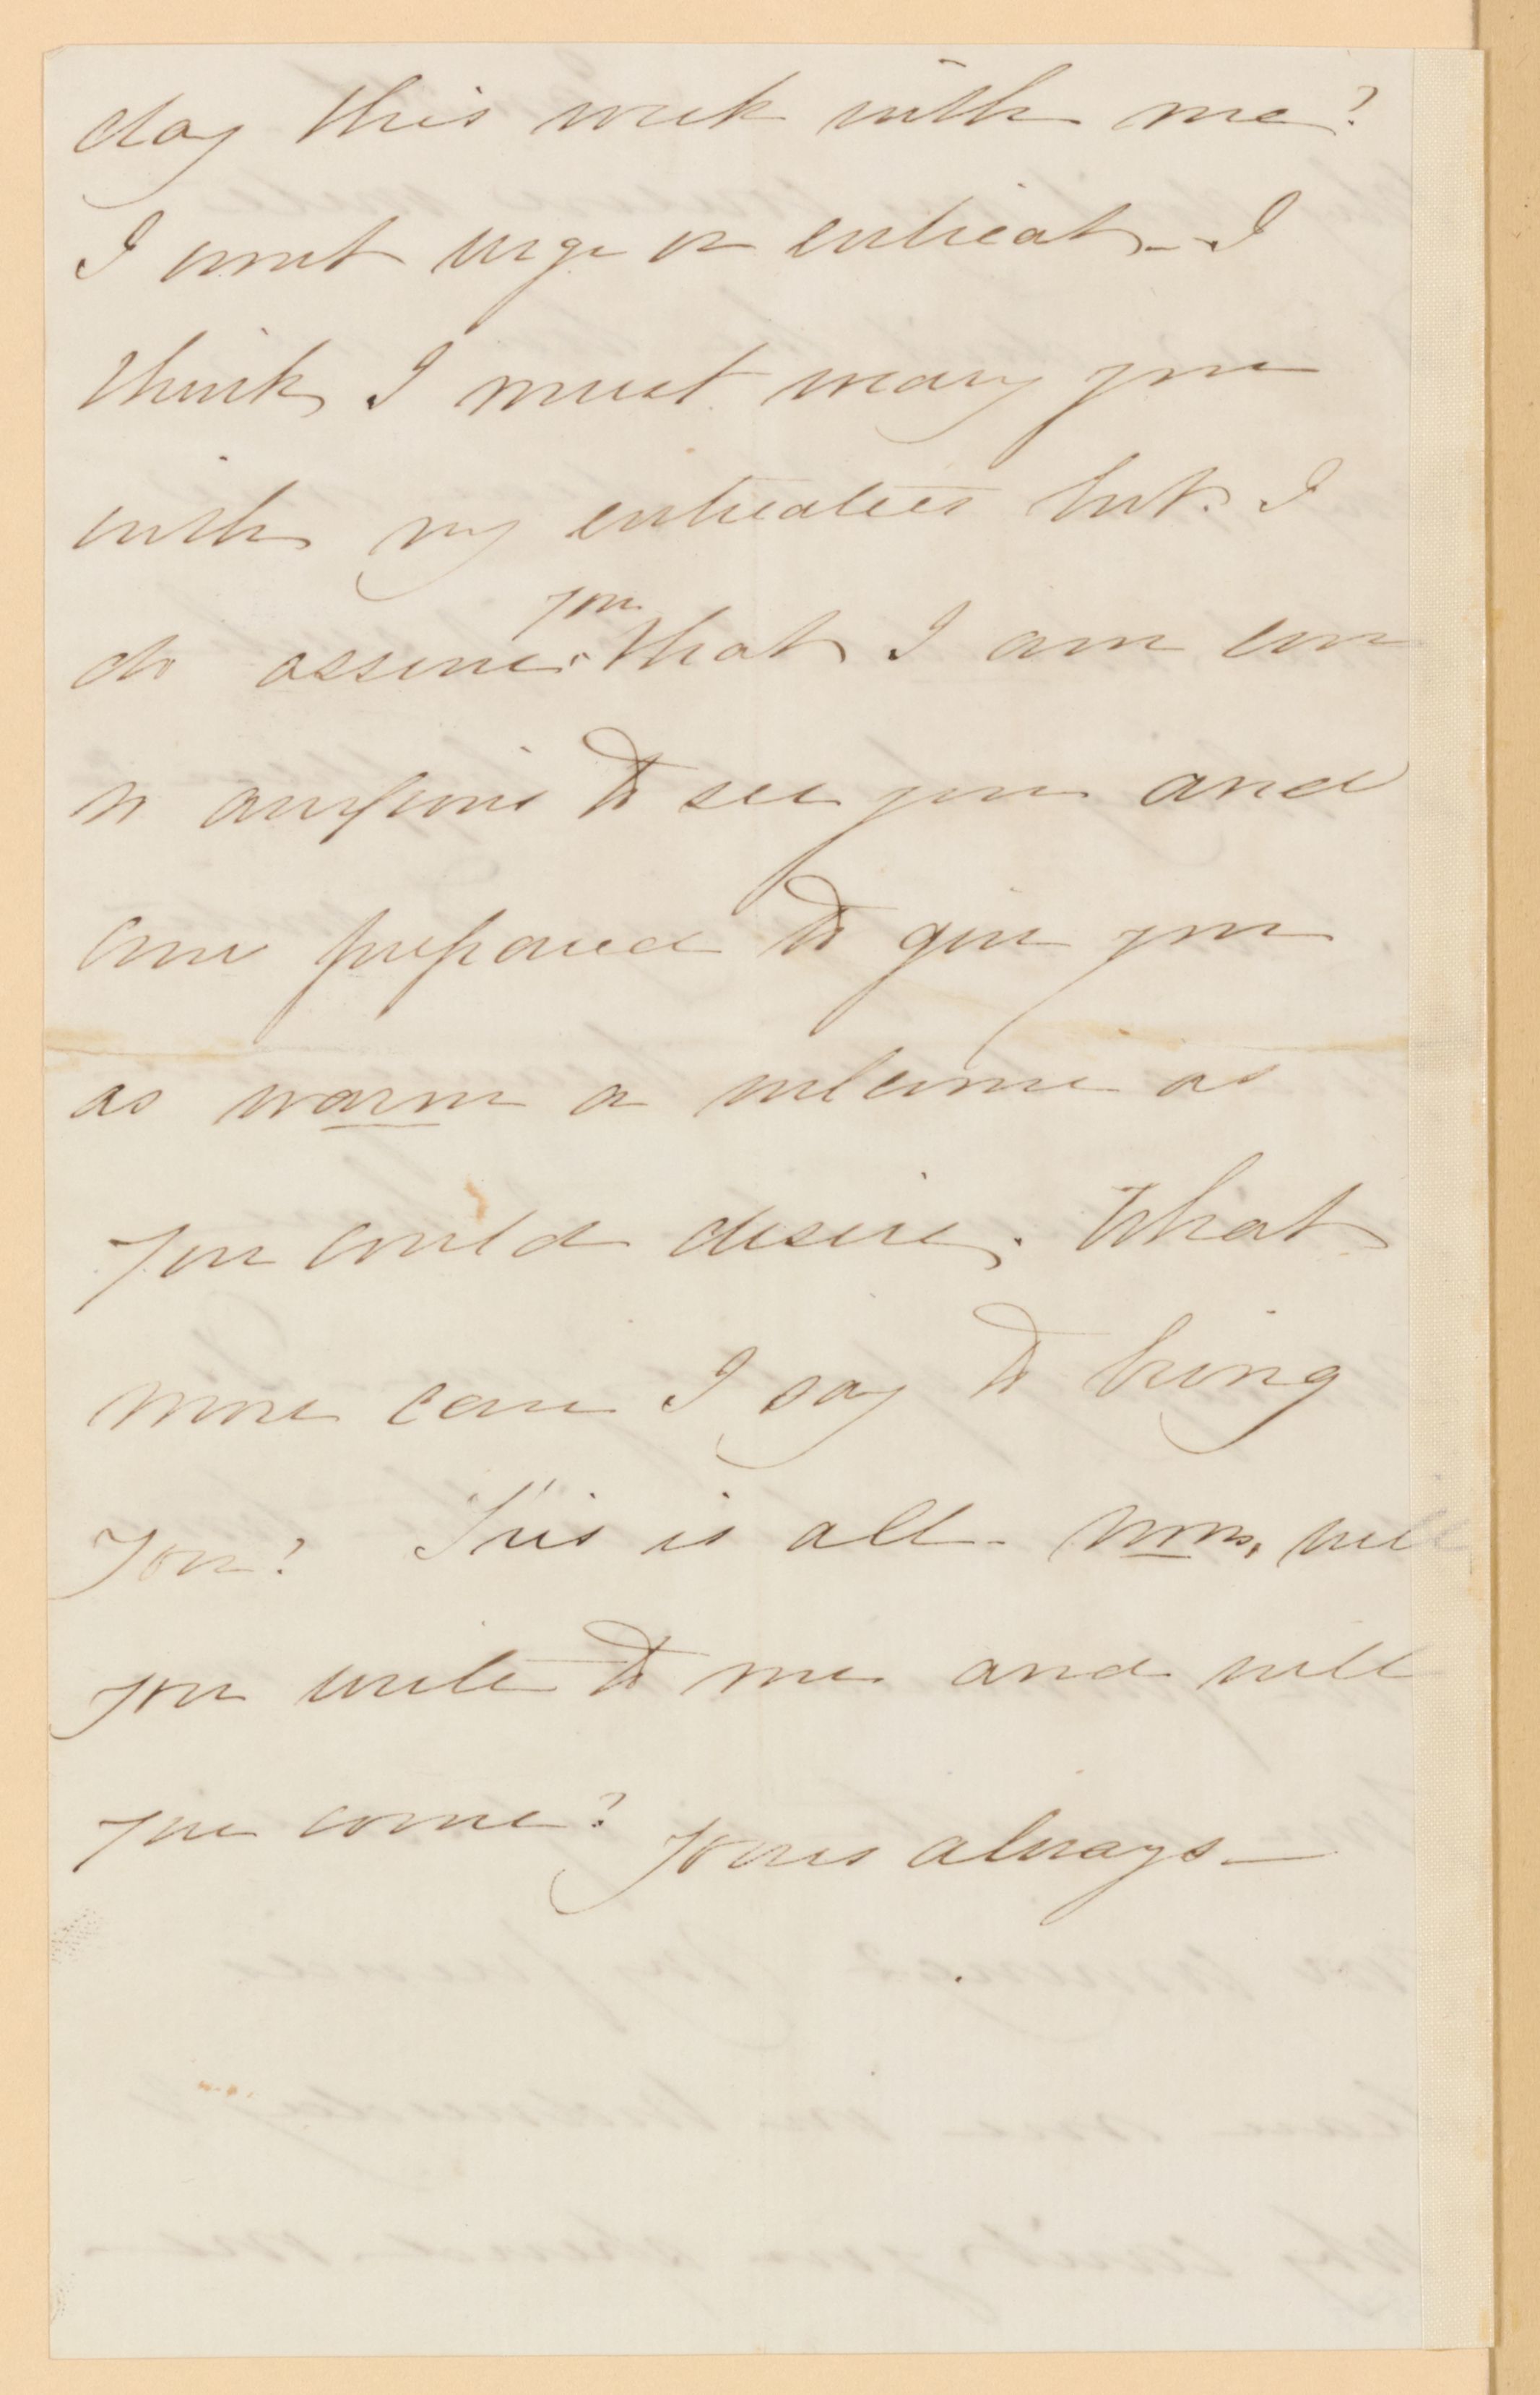 day this week with me?
I wont urge or entreat - I
think I must weary you
with my entreaties but I
do assure you that I am ever
so anxious to see you and
am prepared to give you
as warm a welcome as
you could desire. What
more can I say to bring
you? This is all - now, will
you write to me and will
you come? Yours always -